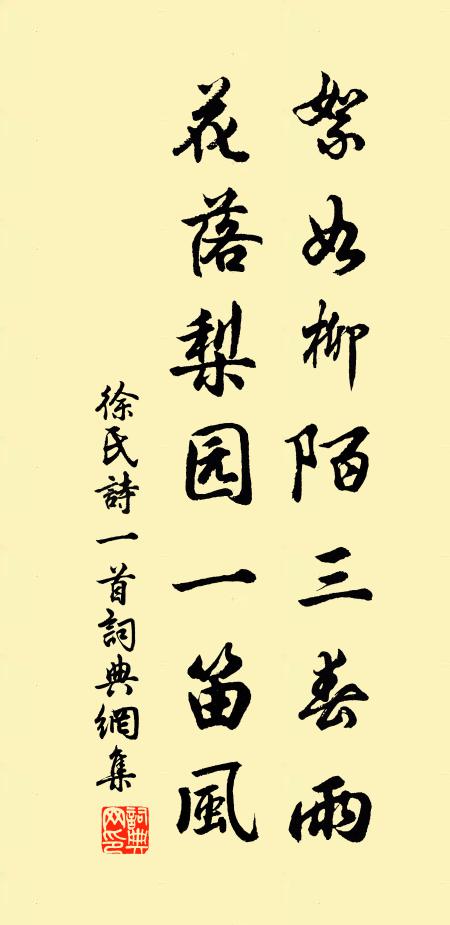 絮如柳陌三春雨
花落梨园一笛風
徐氏詩一首詞典網集
詞典網印